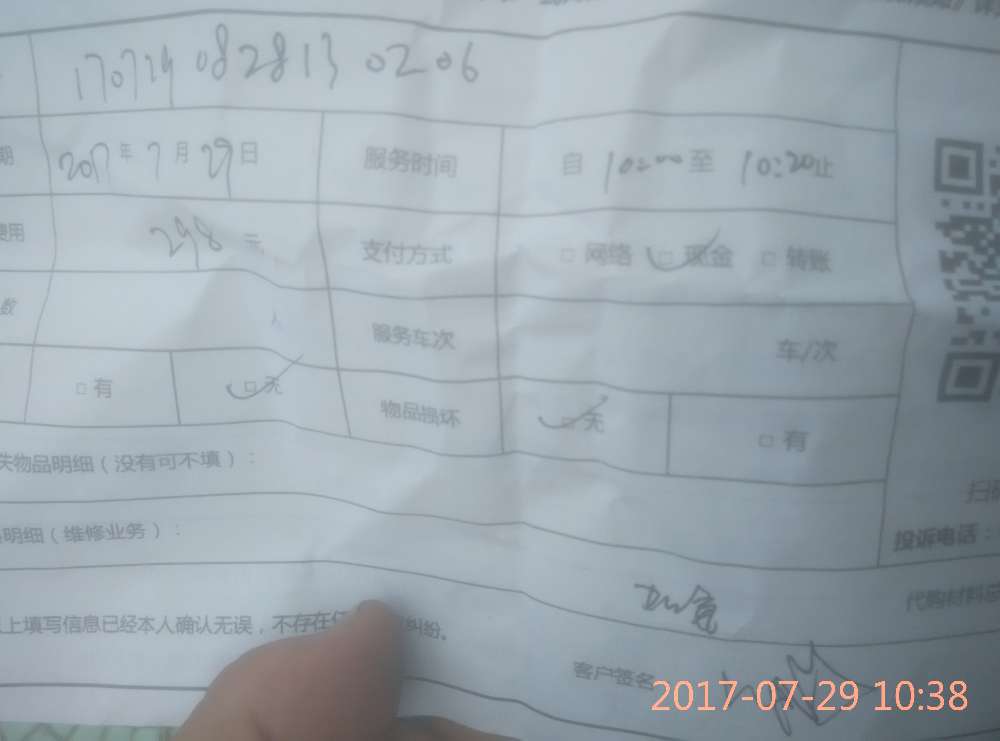 170729 082813 0206
期 2017年7月29日 服务时间 自 10:00 至 10:20止
费用 298 元 支付方式 □ 网络 □ 现金 □ 转账
数 人 服务车次 车/次
□ 有 □ 无 物品损坏 □ 无 □ 有
失物品明细（没有可不填）：
扫
明细（维修业务）：
投诉电话：
代购材料总
以上填写信息已经本人确认无误，不存在任 纠纷。
客户签名
2017-07-29 10:38